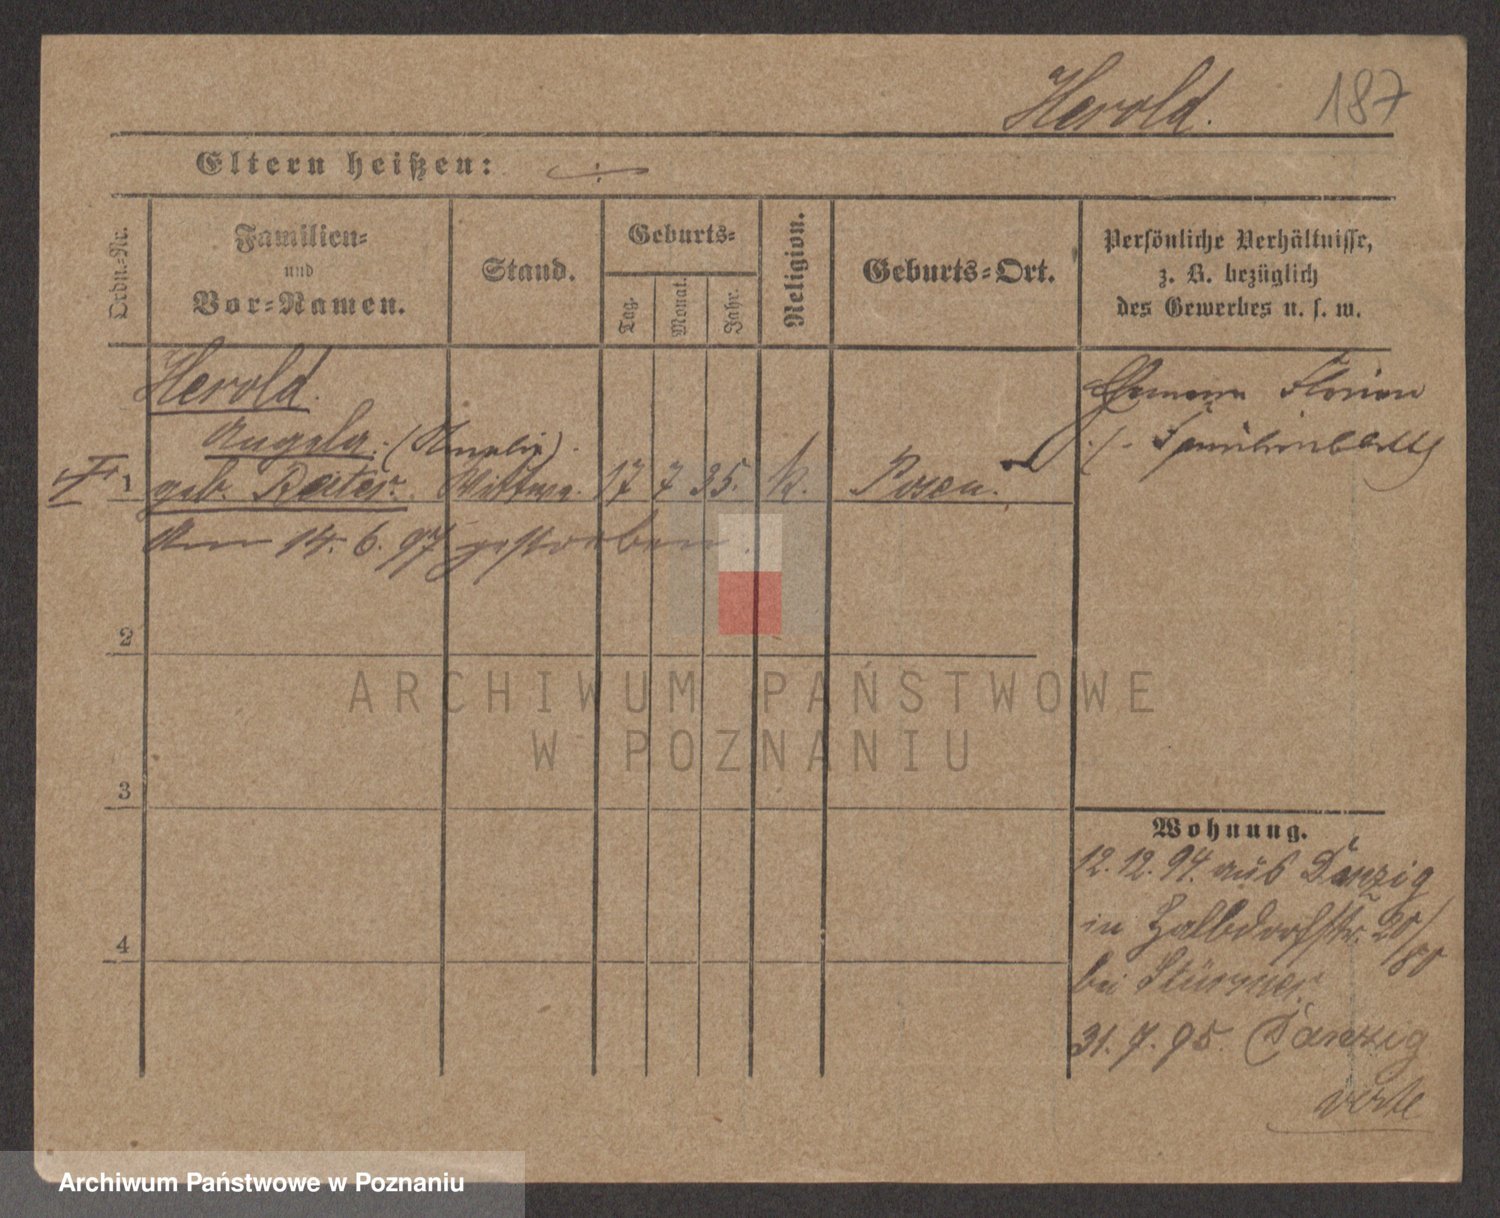 Herold. 187
Eltern heißen:
Ordn.-Nr.
Familien-
und
Vor-Namen.
Stand.
Geburts-
Tag.
Monat.
Jahr.
Religion.
Geburts-Ort.
Persönliche Verhältnisse,
z. B. bezüglich
des Gewerbes u. s. w.
Herold.
Angela. (Amalie).
1 geb. Reiter. Wittwe. 17 7 35. k. Posen.
Am 14. 6. 97 gestorben.
Ehemann Florian
2
3
4
Wohnung.
12. 12. 94. aus Danzig
in Halbdorfstr. 20/
bei Stürmer
31. 7. 95. Danzig
verte
ARCHIWUM PAŃSTWOWE
W POZNANIU
Archiwum Państwowe w Poznaniu